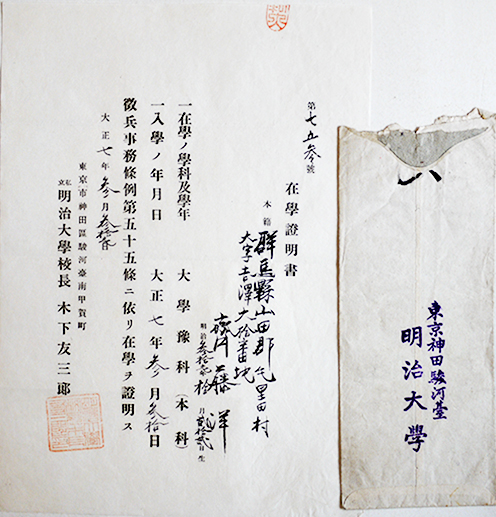 第七五參號
在學證明書
本籍 群馬縣山田郡毛里田村
大字吉澤 大拾番地
藤 洋
明治參拾 年拾 月貳拾貳日生
一在學ノ學科及學年 大學豫科(本科)
一入學ノ年月日 大正七年參月參拾日
徵兵事務條例第五十五條ニ依リ在學ヲ證明ス
大正七年參月參拾日
東京市神田區駿河臺南甲賀町
私立 明治大學校長 木下友三郎
東京神田駿河臺
明治大學